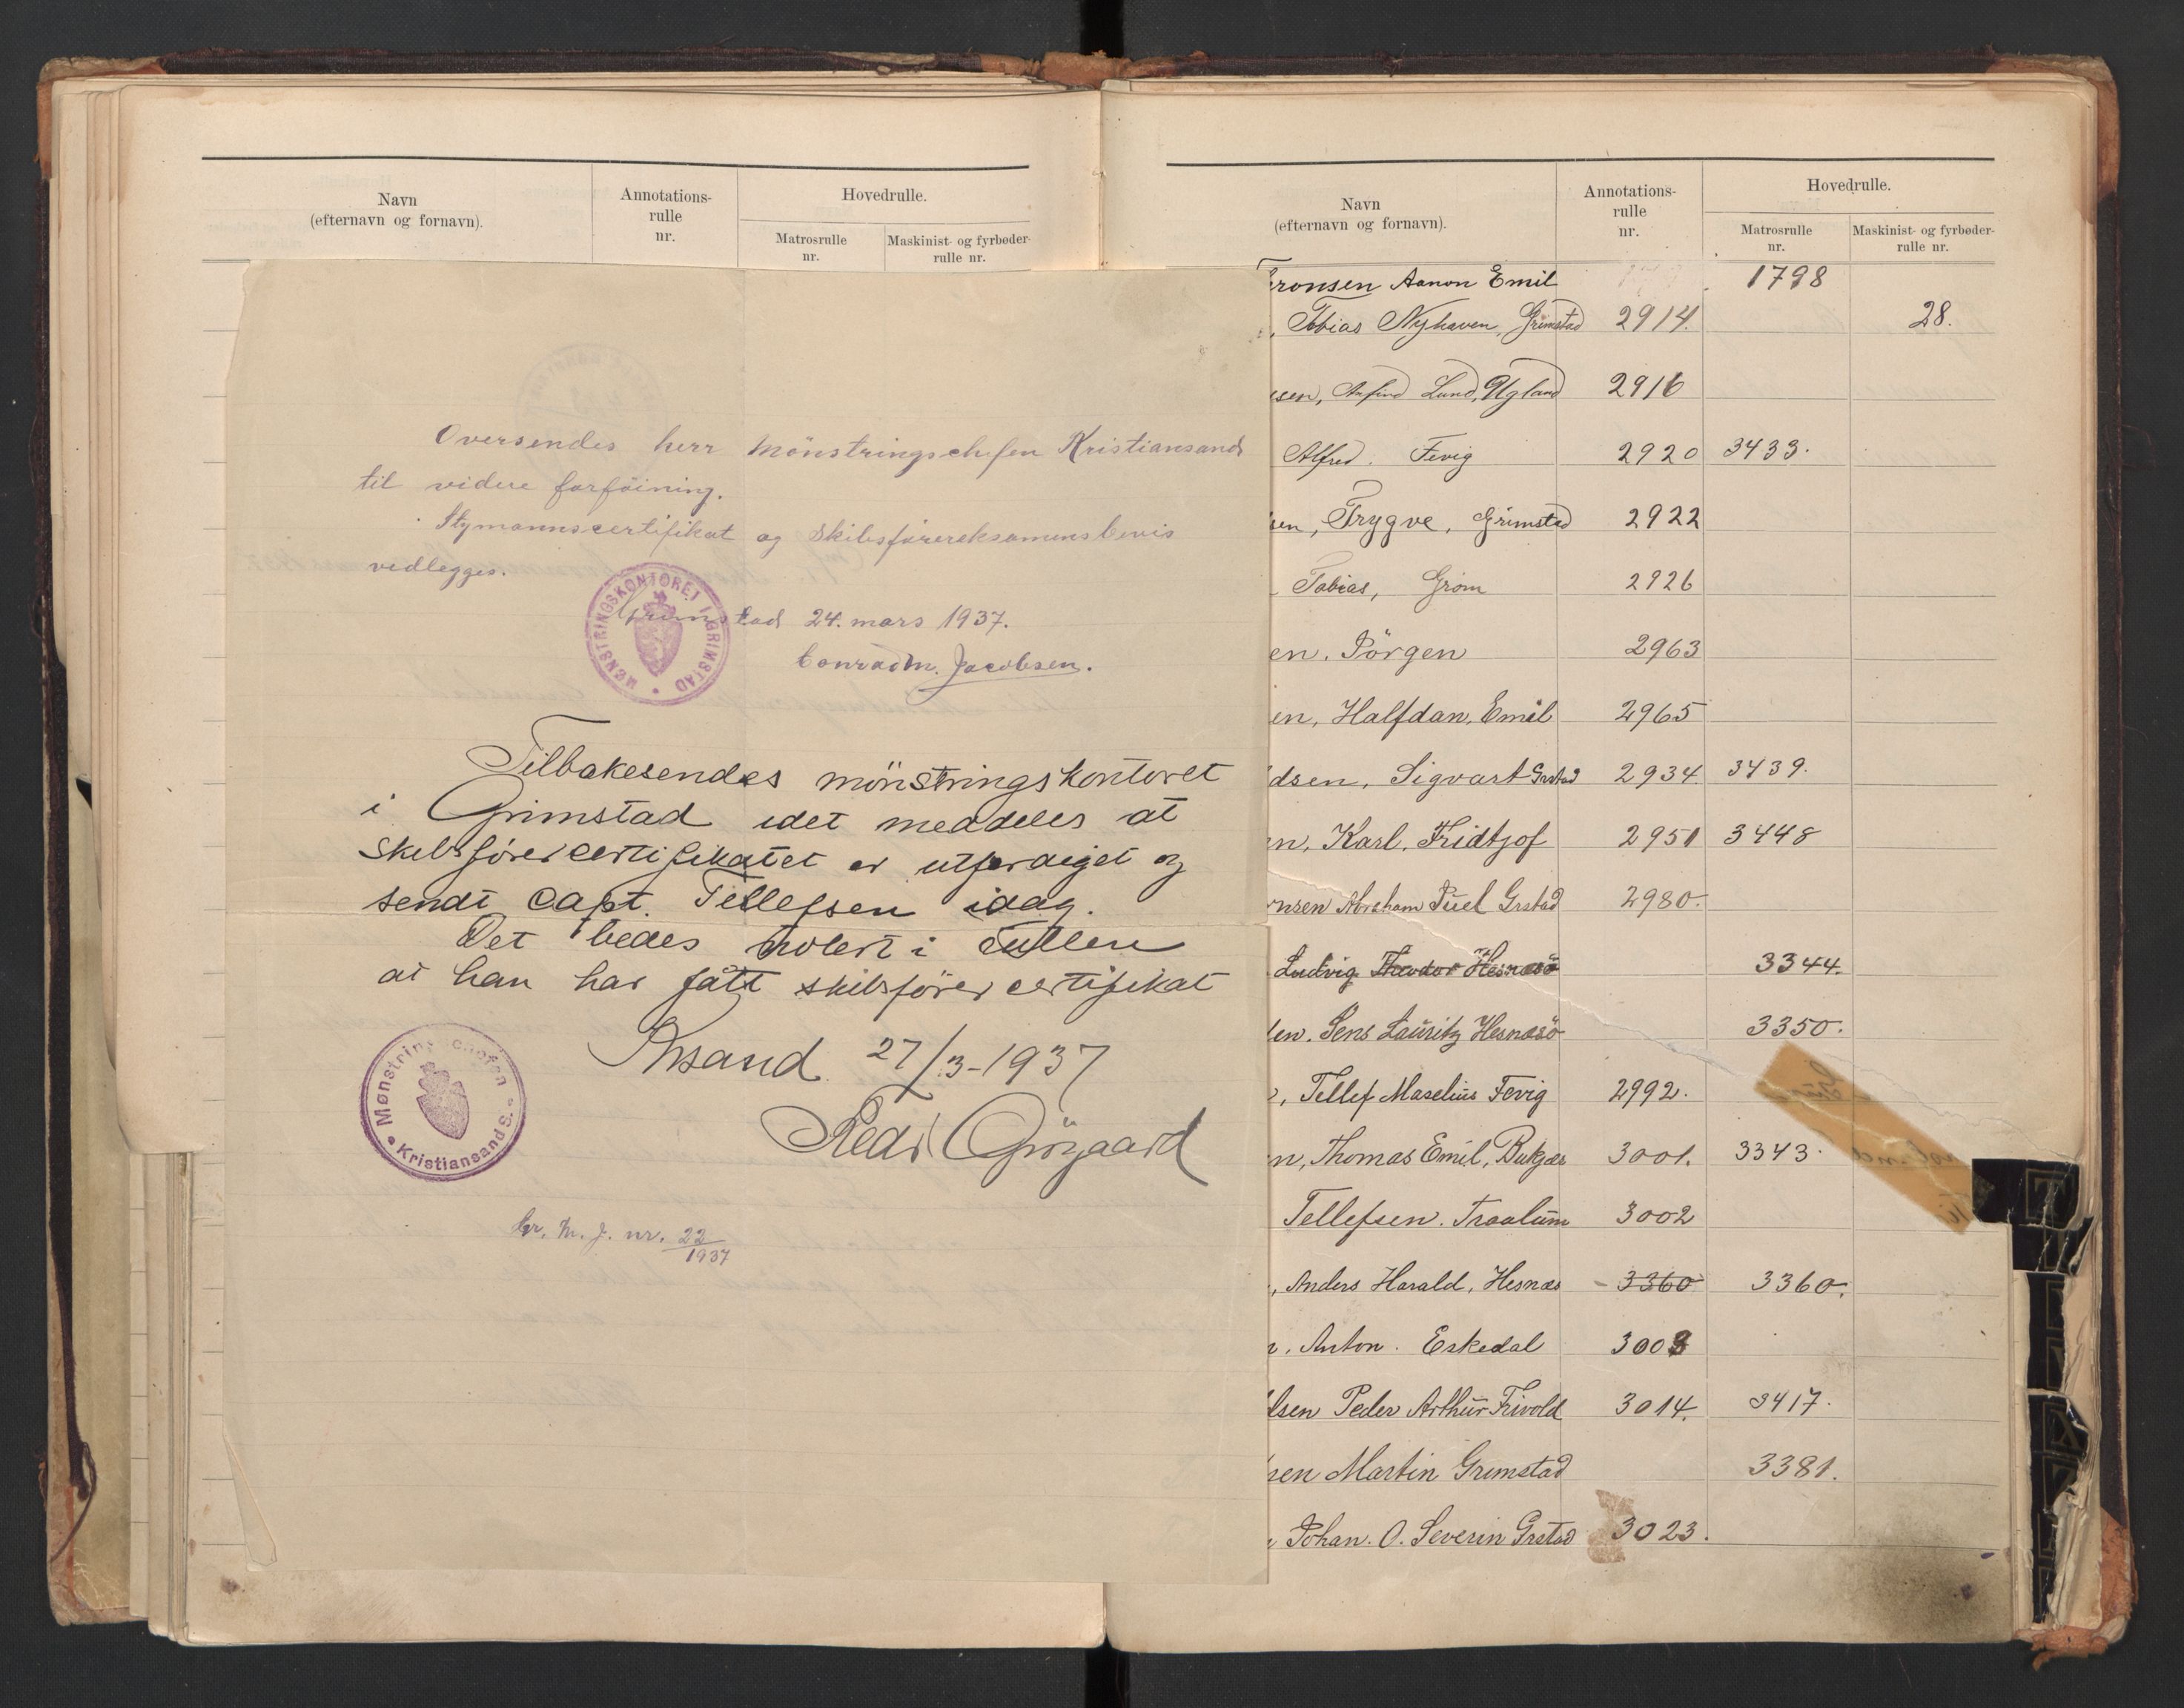 Navn
(efternavn og fornavn).
Annotations-
rulle
nr.
Hovedrulle.
Matrosrulle
nr.
Maskinist- og fyrbøder-
rulle nr.
Oversendes herr Mönstringschefen Kristiansand
til videre forföining.
Stymannscertifikat og Skibsförereksamensbevis
vedlegges.
Grimstad 24. mars 1937.
Conrad M. Jacobsen.
MØNSTRINGSKONTORET I GRIMSTAD
Tilbakesendes mönstringskontoret
i Grimstad idet meddeles at
skibsförercertifikatet er utferdiget og
sendt Capt. Tellefsen idag.
Det bedes notert i rullen
at han har fått skibsförercertifikat
Krsand 27/3-1937
Mønstringschefen Kristiansand S.
Gr. M. J. nr. 22/1937
Navn
(efternavn og fornavn).
Annotations-
rulle
nr.
Hovedrulle.
Matrosrulle
nr.
Maskinist- og fyrbøder-
rulle nr.
ronsen Aanon Emil 1798
, Tobias Nyhaven, Grimstad 2914. 28.
sen, Anfind Lund, Ugland 2916
Alfred. Fevig 2920 3433.
sen, Trygve, Grimstad 2922
Tobias, Grom 2926
en, Jörgen 2963
en, Halfdan, Emil 2965
dsen, Sigvart Grstad 2934 3439.
n, Karl, Fridtjof 2951 3448
nsen Abraham Juel Grstad 2980.
Ludvig Theodor Hesnesö 3344.
en, Jens Lauritz Hesnesö 3350.
, Tellef Maselius Fevig 2992.
n, Thomas Emil, Bukjær 3001. 3343.
Tellefsen. Traalum 3002
, Anders Harald, Hesnæs - 3360 3360.
, Anton. Eskedal 3003
lsen Peder Arthur Frivold 3014. 3417.
sen Martin Grimstad 3381.
Johan. O. Severin Grstad 3023.